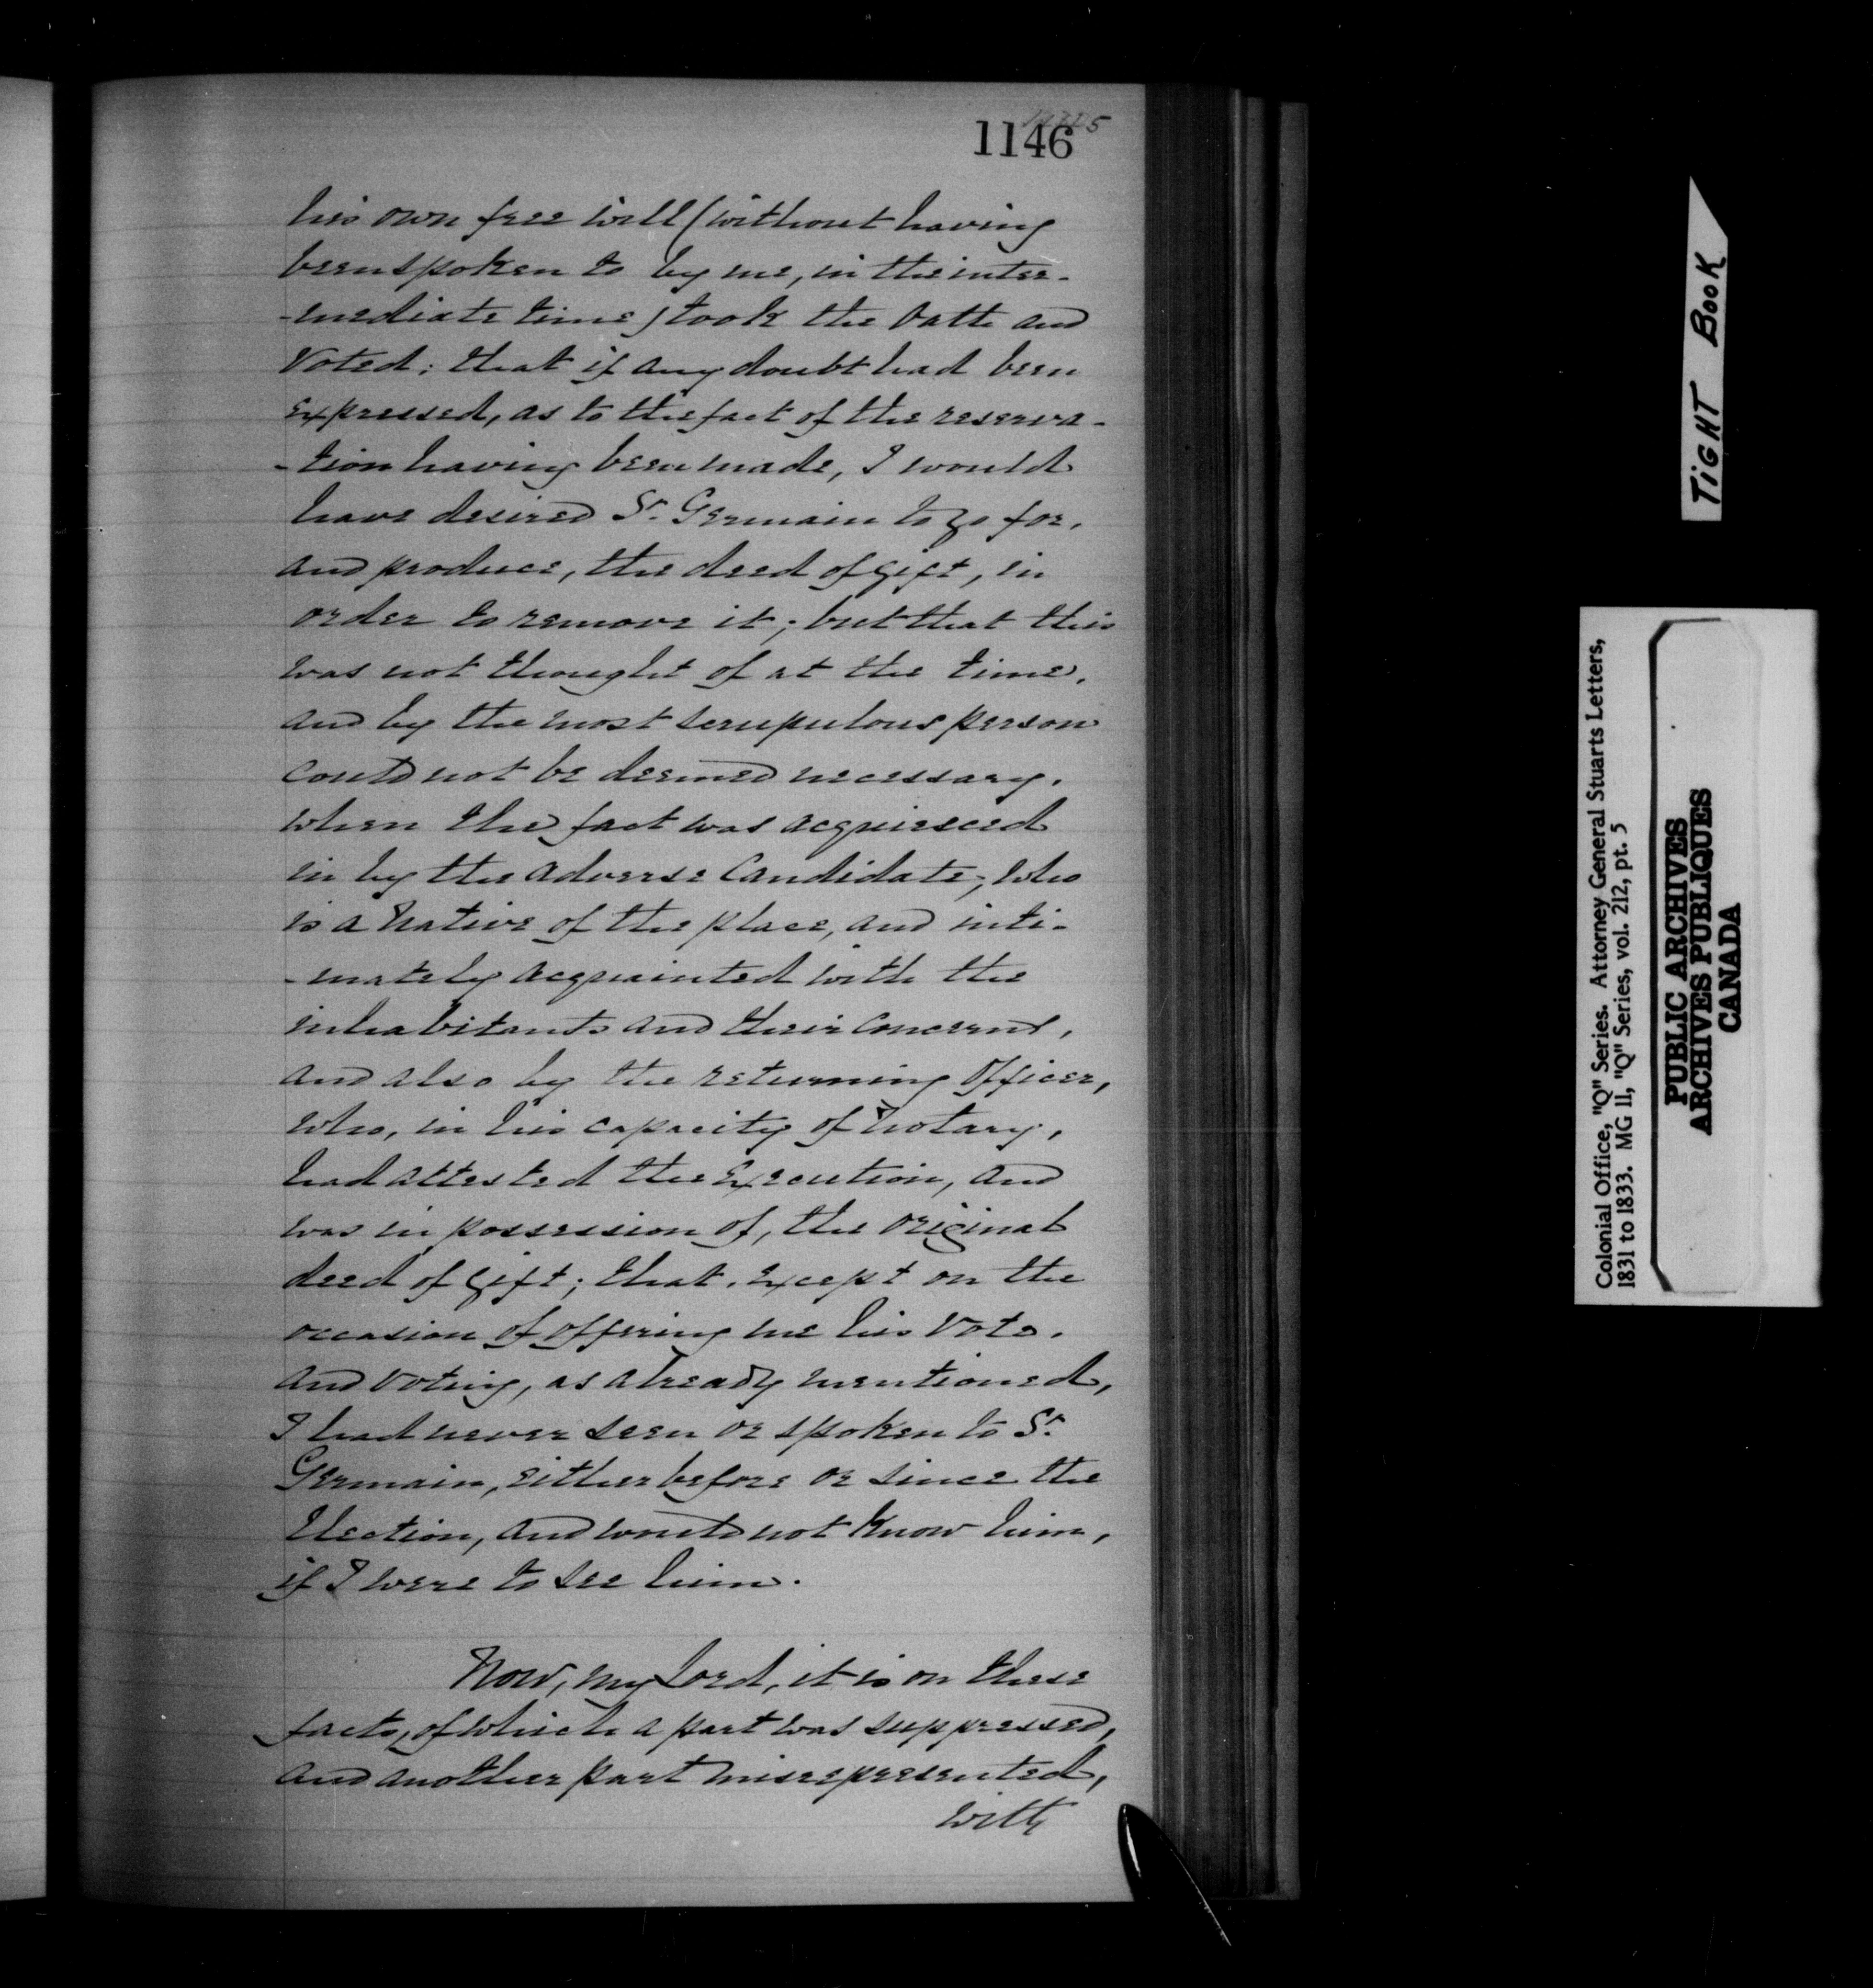 1146
his own free will (without having
been spoken to by me, in the inter-
-mediate time) took the Oath and
Voted; that if any doubt had been
expressed, as to the fact of the reserva-
-tion having been made, I would
have desired St. Germain to go for,
and produce, the deed of gift, in
order to remove it; but that this
was not thought of at the time,
and by the most scrupulous person
could not be deemed necessary,
when the fact was acquiesced
in by the adverse Candidate, who
is a native of the place, and inti-
-mately acquainted with the
inhabitants and their concerns,
and also by the returning Officer,
who, in his capacity of Notary,
had attested the Execution, and
was in possession of, the original
deed of Gift; that, except on the
occasion of offering me his Vote,
and voting, as already mentioned,
I had never seen or spoken to St.
Germain, either before or since the
Election, and would not know him,
if I were to see him.
Now, my Lord, it is on these
facts, of which a part was suppressed,
and another part misrepresented,
with
TIGHT BOOK
Colonial Office, "Q" Series. Attorney General Stuarts Letters,
1831 to 1833. MG 11, "Q" Series, vol. 212, pt. 5
PUBLIC ARCHIVES
ARCHIVES PUBLIQUES
CANADA